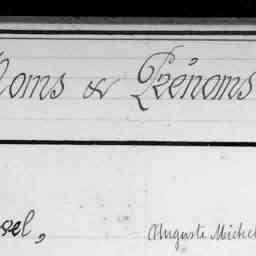 Noms & Prénoms
sel, Auguste Michel